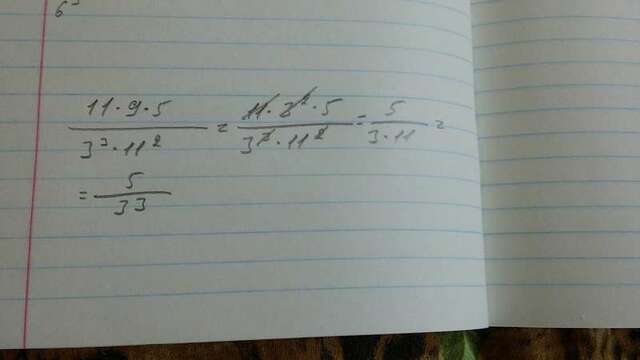 11·9·5 / 3³·11² = 11·3²·5 / 3³·11² = 5 / 3·11 =
= 5 / 33